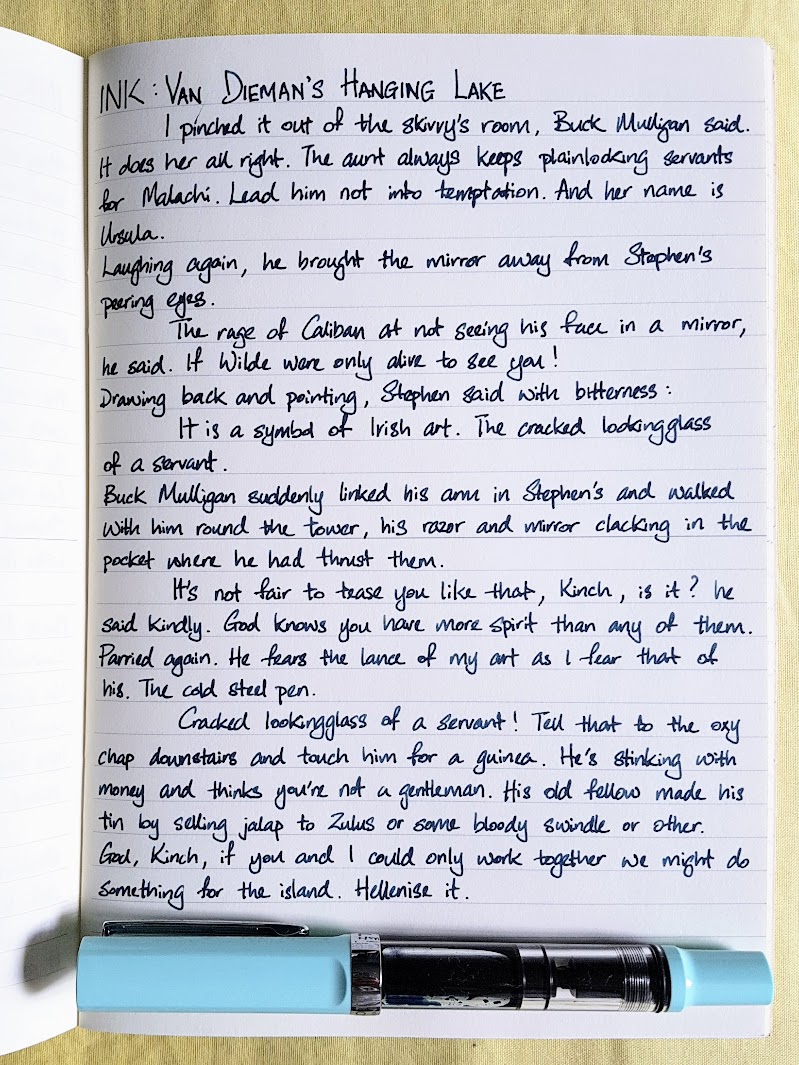 INK: VAN DIEMAN'S HANGING LAKE
I pinched it out of the skivvy's room, Buck Mulligan said.
It does her all right. The aunt always keeps plainlooking servants
for Malachi. Lead him not into temptation. And her name is
Ursula.
Laughing again, he brought the mirror away from Stephen's
peering eyes.
The rage of Caliban at not seeing his face in a mirror,
he said. If Wilde were only alive to see you!
Drawing back and pointing, Stephen said with bitterness:
It is a symbol of Irish art. The cracked lookingglass
of a servant.
Buck Mulligan suddenly linked his arm in Stephen's and walked
with him round the tower, his razor and mirror clacking in the
pocket where he had thrust them.
It's not fair to tease you like that, Kinch, is it? he
said kindly. God knows you have more spirit than any of them.
Parried again. He fears the lance of my art as I fear that of
his. The cold steel pen.
Cracked lookingglass of a servant! Tell that to the oxy
chap downstairs and touch him for a guinea. He's stinking with
money and thinks you're not a gentleman. His old fellow made his
tin by selling jalap to Zulus or some bloody swindle or other.
God, Kinch, if you and I could only work together we might do
something for the island. Hellenise it.